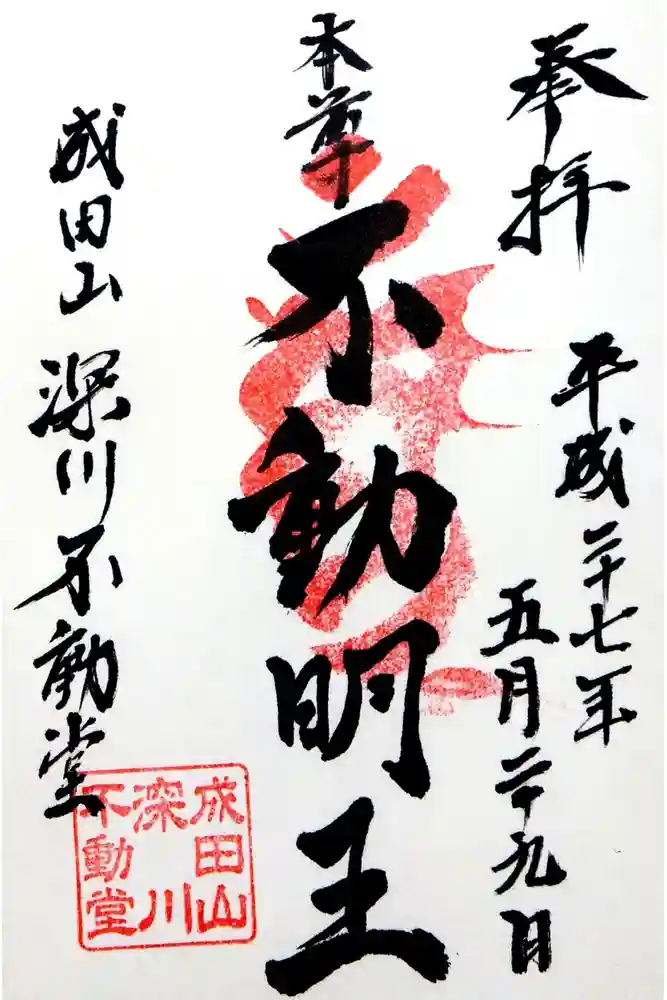 奉拝
平成二十七年
五月二十九日
本尊
不動明王
成田山 深川不動堂
成田山
深川
不動堂